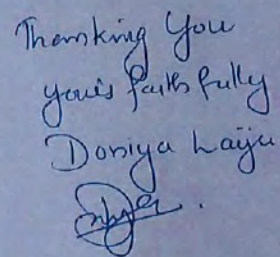 Thanking You
your's faithfully
Doniya Laiju